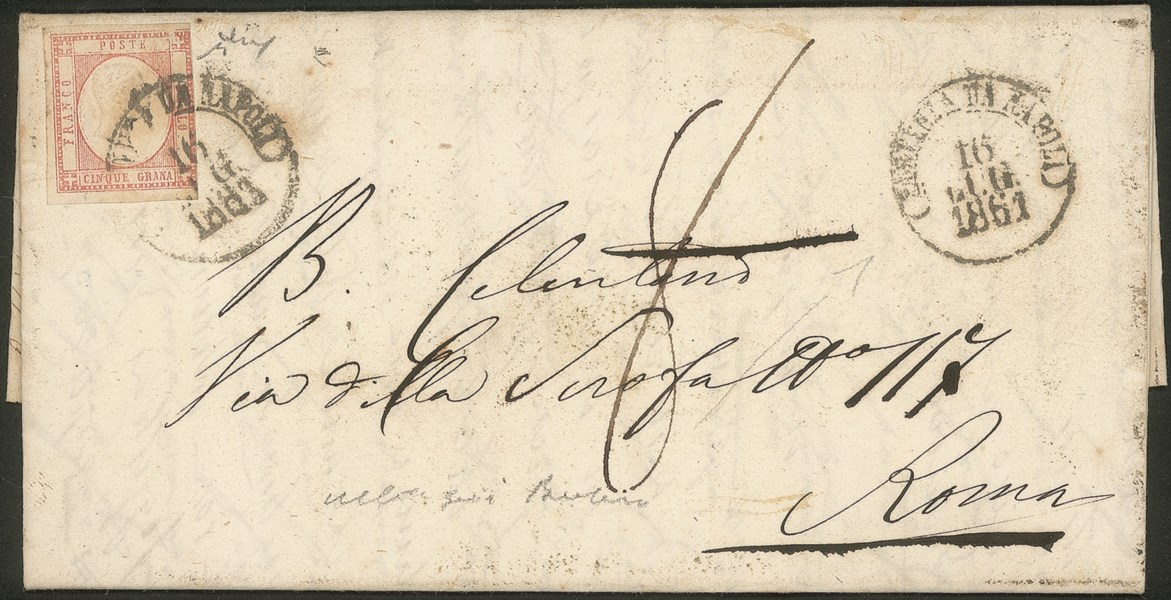 POSTE
FRANCO
CINQUE GRANA
NAPOLI
16
1861
PARTENZA DA NAPOLI
16
LUG
1861
B. Celentano
Via della Scrofa No 117
Roma